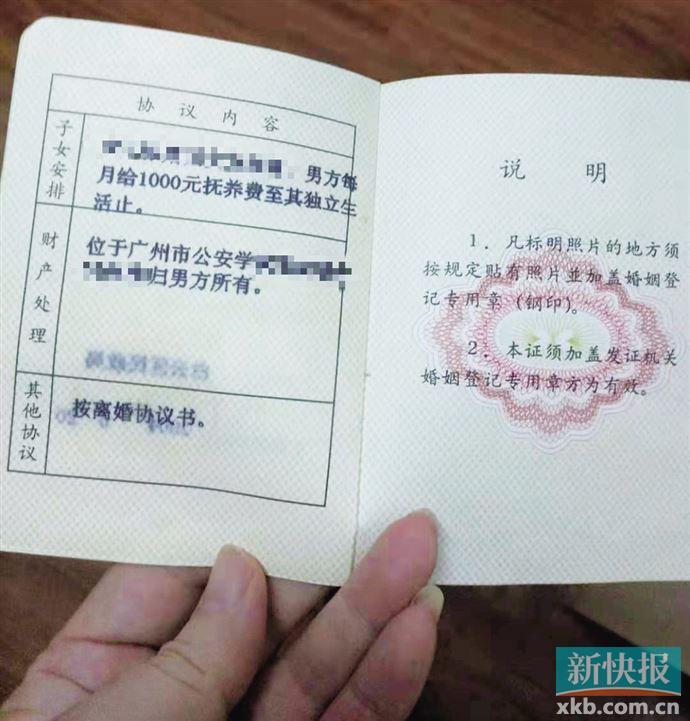 协议内容
子女安排
男方每
月给1000元抚养费至其独立生
活止。
财产处理
位于广州市公安学
归男方所有。
白云区民政局
其他协议
按离婚协议书。
说 明
1．凡标明照片的地方须
按规定贴有照片並加盖婚姻登
记专用章（钢印）。
2．本证须加盖发证机关
婚姻登记专用章方为有效。
新快报
xkb.com.cn